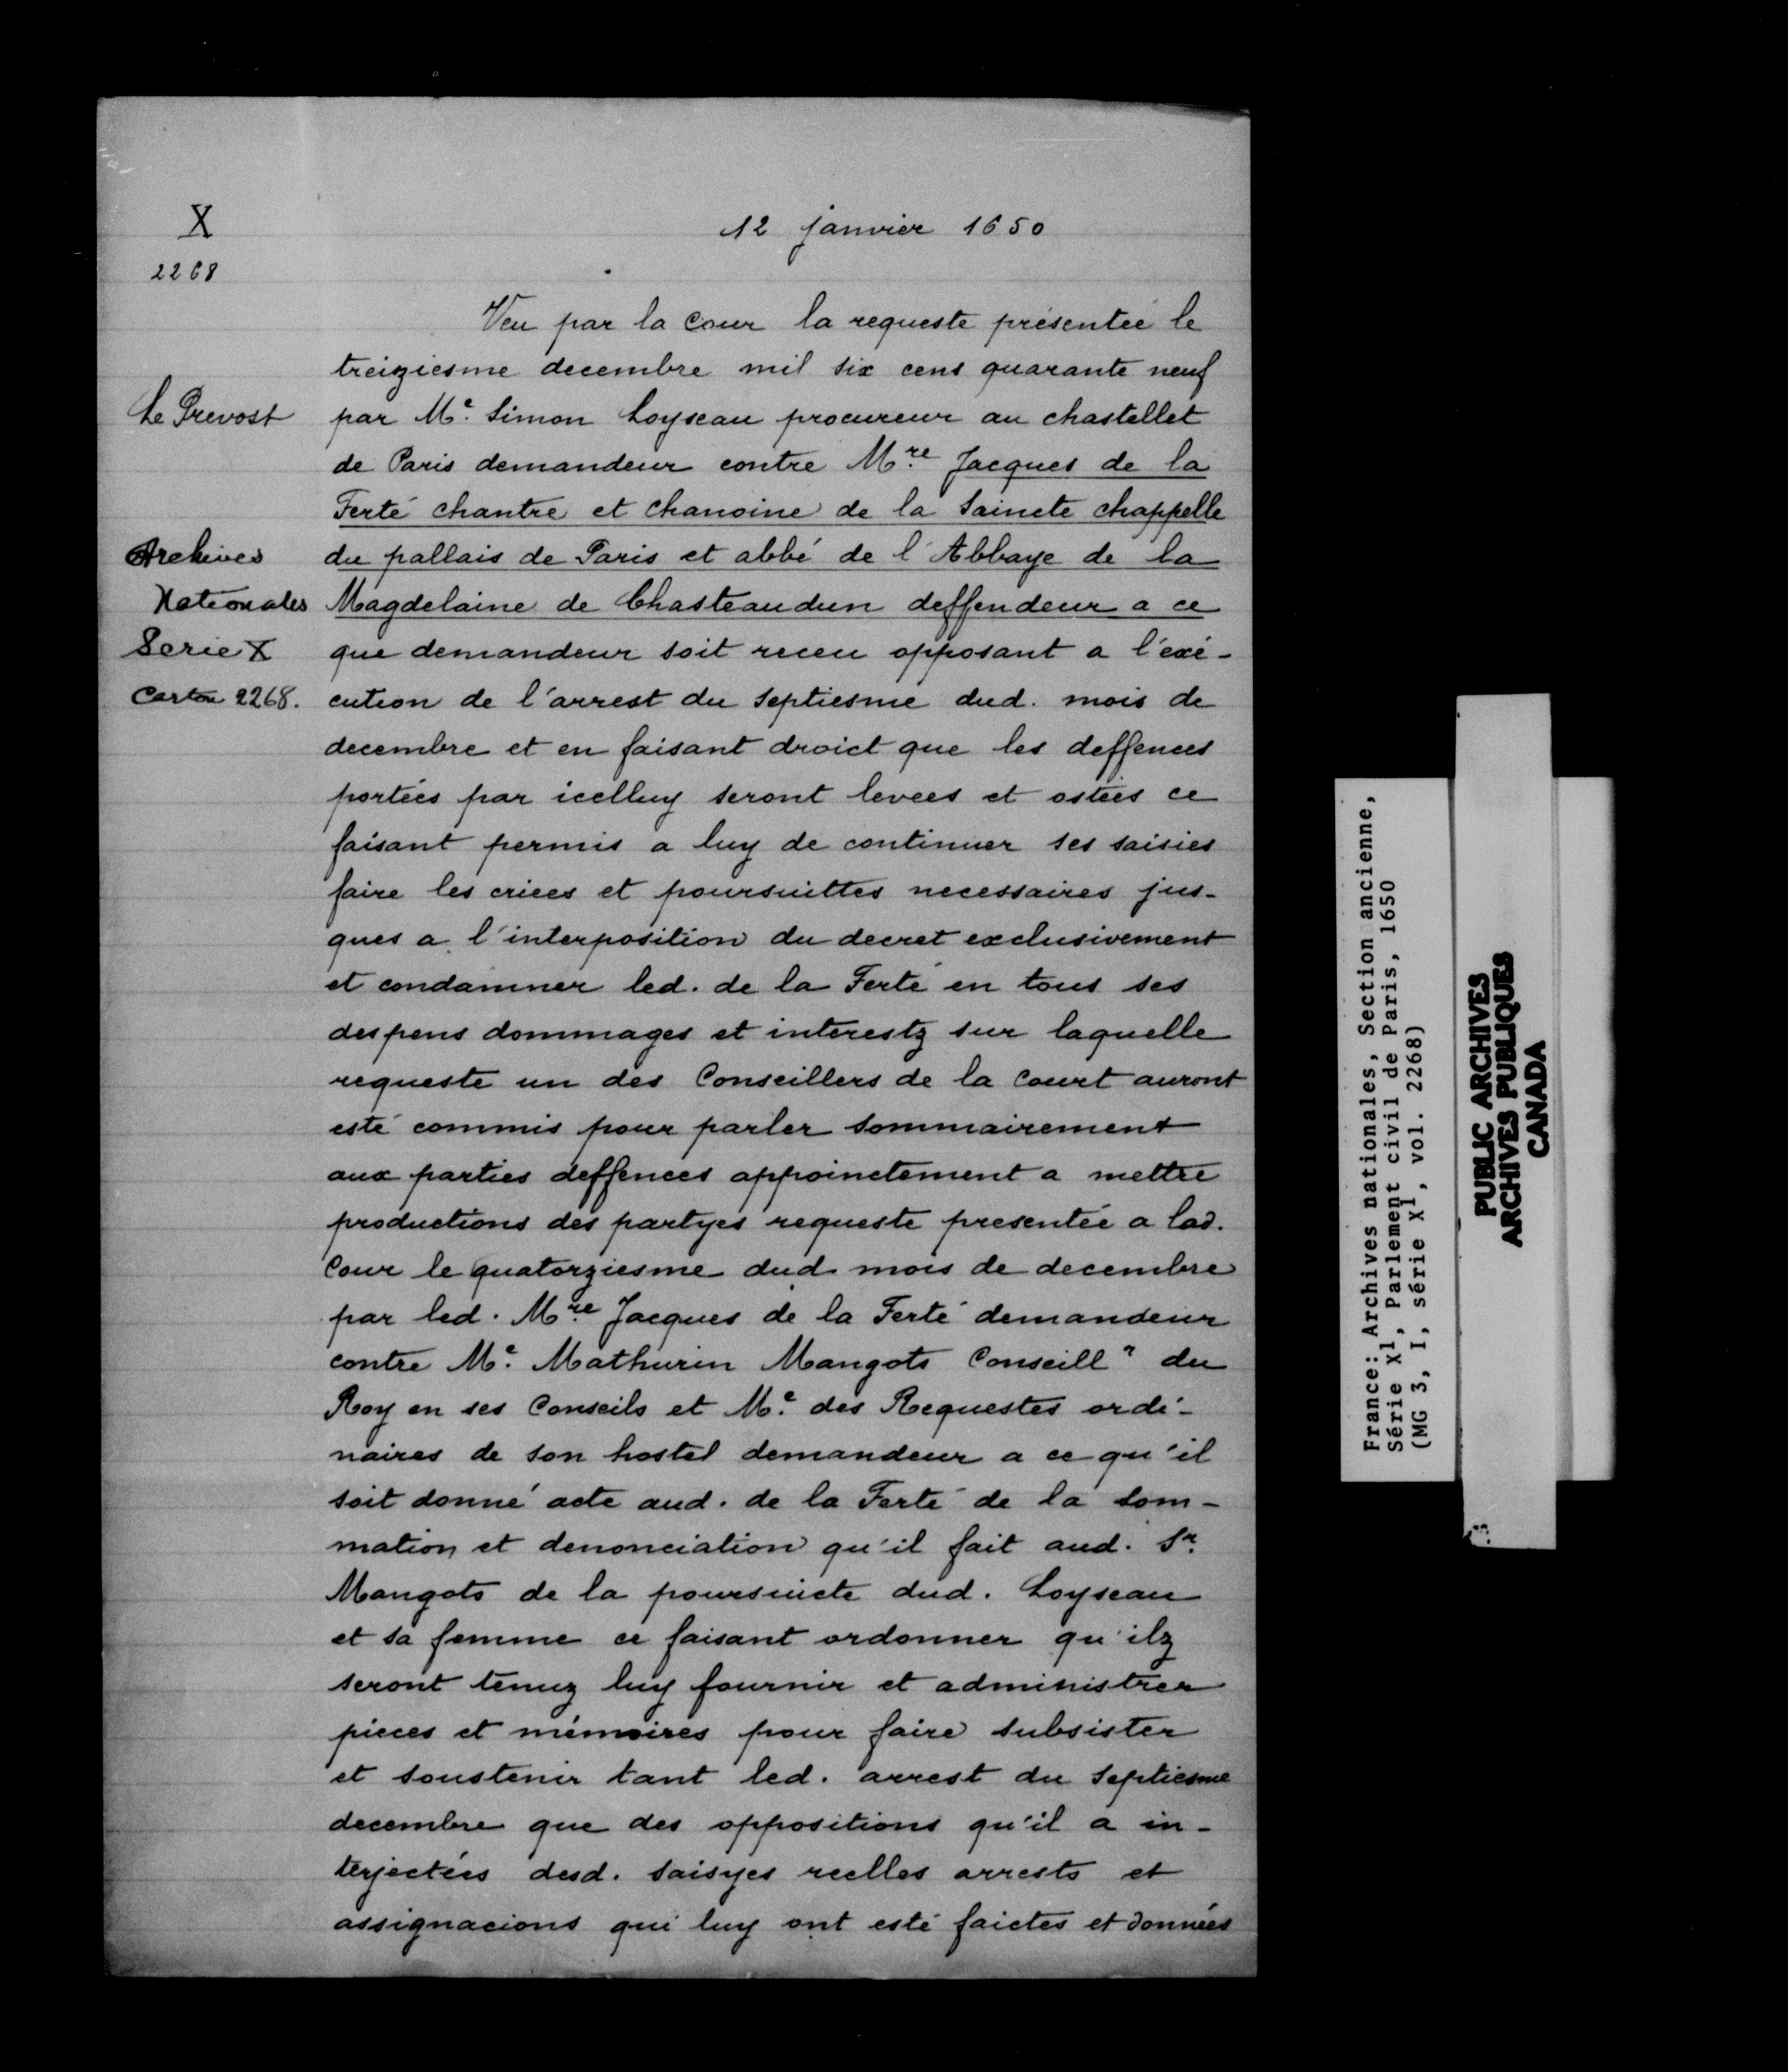 X
2268
12 janvier 1650
Veu par la Cour la requeste présentée le
treiziesme decembre mil six cens quarante neuf
Le Prevost
par Me. Simon Loyseau procureur au chastellet
de Paris demandeur contre Mre Jacques de la
Ferté chantre et chanoine de la Saincte chappelle
Archives
Nationales
Serie X
Carton 2268.
du pallais de Paris et abbé de l'Abbaye de la
Magdelaine de Chasteaudun deffendeur a ce
que demandeur soit receu opposant a l'exé-
cution de l'arrest du septiesme dud. mois de
decembre et en faisant droict que les deffences
portées par icelluy seront levees et ostées ce
faisant permis a luy de continuer ses saisies
faire les criees et poursuittes necessaires jus-
ques a l'interposition du decret exclusivement
et condamner led. de la Ferté en tous ses
despens dommages et interestz sur laquelle
requeste un des Conseillers de la Court auront
esté commis pour parler sommairement
aux parties deffences appoinctement a mettre
productions des partyes requeste presentée a lad.
Cour le quatorziesme dud. mois de decembre
par led. Mre Jacques de la Ferté demandeur
contre Me. Mathurin Mangots Conseillr du
Roy en ses Conseils et Me. des Requestes ordi-
naires de son hostel demandeur a ce qu'il
soit donné acte aud. de la Ferté de la som-
mation et denonciation qu'il fait aud. Sr.
Mangots de la poursuicte dud. Loyseau
et sa femme ce faisant ordonner qu'ilz
seront tenuz luy fournir et administrer
pieces et mémoires pour faire subsister
et soustenir tant led. arrest du septiesme
decembre que des oppositions qu'il a in-
terjectées desd. saisyes reelles arrests et
assignacions qui luy ont esté faictes et données
France: Archives nationales, Section ancienne,
Série X1, Parlement civil de Paris, 1650
(MG 3, I, série X1, vol. 2268)
PUBLIC ARCHIVES
ARCHIVES PUBLIQUES
CANADA